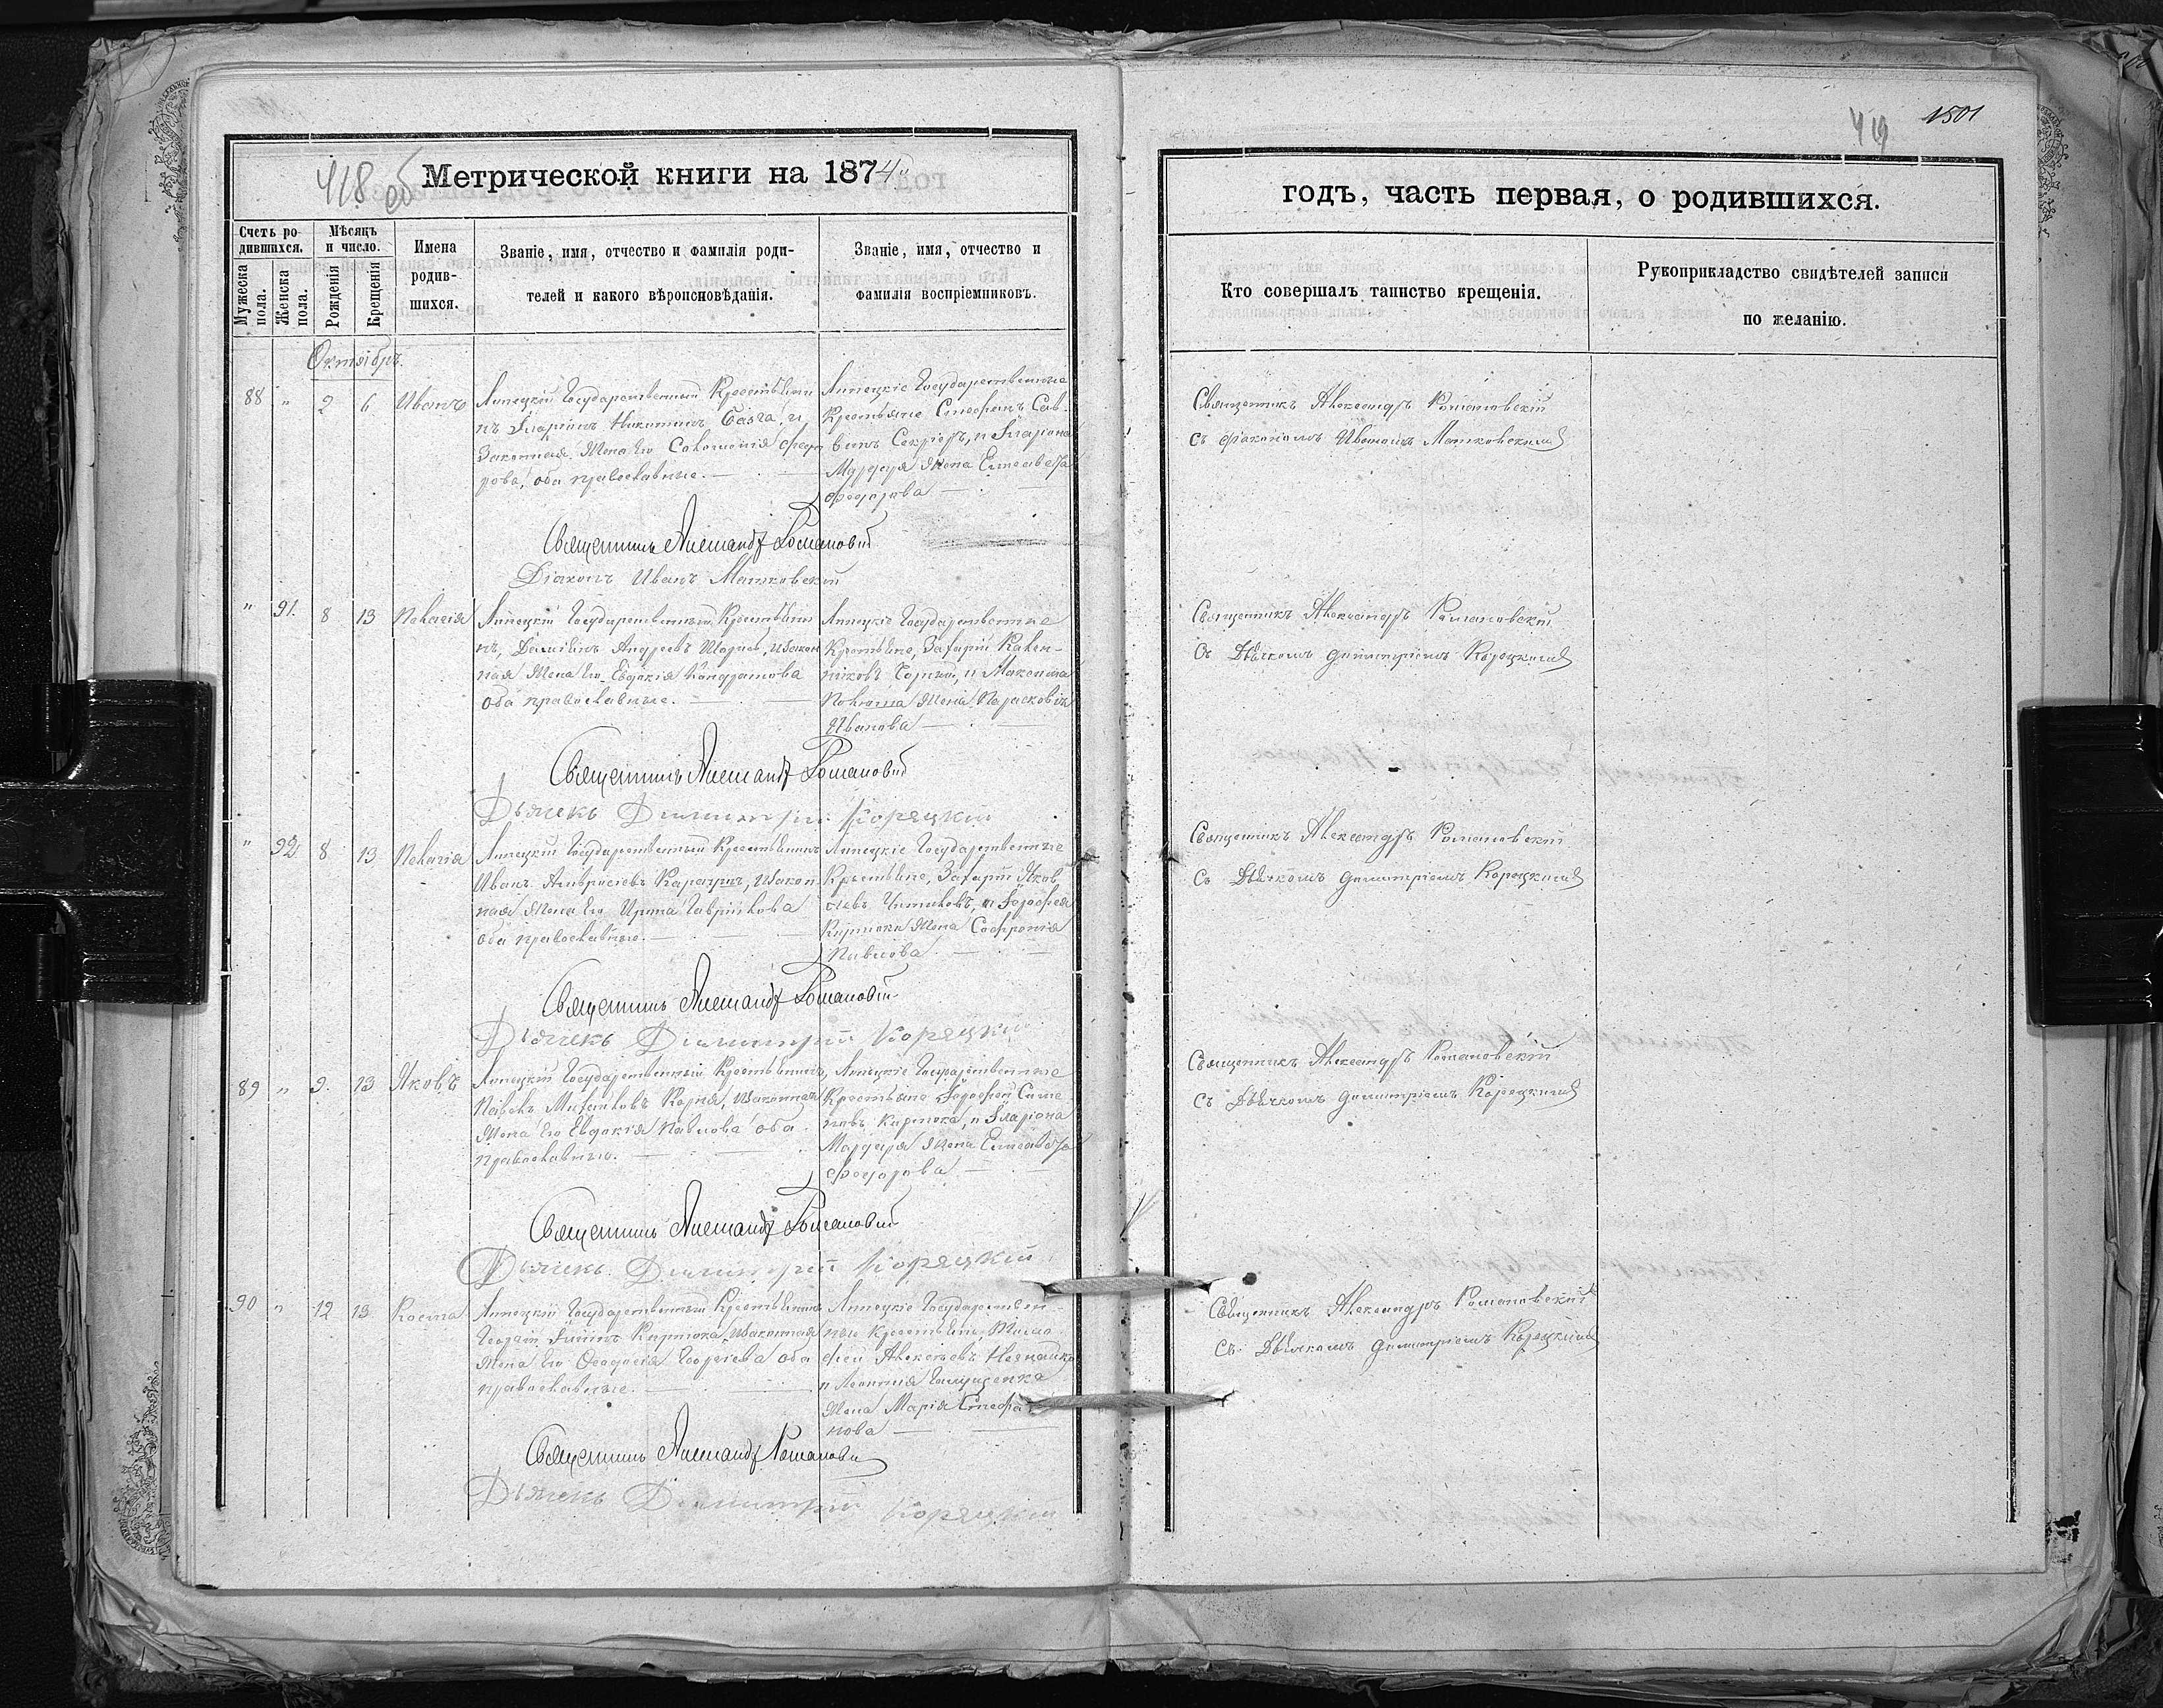 418 об
Метрической книги на 1874
Счетъ ро-
дившихся.
Мужеска
пола.
Женска
пола.
Мѣсяцъ
и число.
Рожденія
Крещенія
Имена
родив-
шихся.
Званіе, имя, отчество и фамилія роди-
телей и какого вѣроисповѣданія.
Званіе, имя, отчество и
фамилія воспріемниковъ.
Октябрь.
88 " 2 6 Иванъ
Липецкій Государственный Крестьяни
нъ Иларіонъ Никитинъ и
Законная Жена Его Соломонія Феодо
рова, оба православные.
Липецкіе Государственные
Крестьяне Стефанъ Сав-
винъ и Иларіона
Мардаря Жена Елисавета
Феодорова
Священникъ Александръ Романовскій
Діаконъ Иванъ Матковскій
" 91. 8 13 Пелагія
Липецкій Государственный Крестьяни
нъ, Андреевъ и Закон
ная Жена Его Евдокія Кондратова
оба православные.
Липецкіе Государственные
Крестьяне, Захарій
и Максима
Жена Парасковія
Иванова
Священникъ Александръ Романовскій
Дьячекъ Димитрій Корецкій
" 92 8 13 Пелагія
Липецкій Государственный Крестьянинъ
Иванъ и Закон
ная Жена Его Ирина Гавриилова
оба православные.
Липецкіе Государственные
Крестьяне, Захарій Яков
левъ и Годофея
Киртока Жена Софронія
Павлова
Священникъ Александръ Романовскій
Дьячекъ Димитрій Корецкій
89 " 9. 13 Яковъ
Липецкій Государственный Крестьянинъ
Павелъ Михайловъ и Законная
Жена Его Евдокія Павлова оба
православные.
Липецкіе Государственные
Крестьяне Годофей Симе
новъ Киртока, и Иларіона
Мардаря Жена Елисавета
Феодорова
Священникъ Александръ Романовскій
Дьячекъ Димитрій Корецкій
90 " 12 13 Косма
Липецкій Государственный Крестьянинъ
Георгій Киртока, и Законная
Жена Его Феодосія Георгіева оба
православные.
Липецкіе Государствен
ные Крестьяне, Тимо
фей Алексѣевъ
и
Жена Марія Стефа
нова
Священникъ Александръ Романовскій
Дьячекъ Димитрій Корецкій
419
1501
годъ, часть первая, о родившихся.
Кто совершалъ таинство крещенія.
Рукоприкладство свидѣтелей записи
по желанію.
Священникъ Александръ Романовскій
съ Діакономъ Иваномъ Матковскимъ
Священникъ Александръ Романовскій
Съ Дьячкомъ Димитріемъ Корецкимъ
Священникъ Александръ Романовскій
Съ Дьячкомъ Димитріемъ Корецкимъ
Священникъ Александръ Романовскій
Съ Дьячкомъ Димитріемъ Корецкимъ
Священникъ Александръ Романовскій
Съ Дьячкомъ Димитріемъ Корецкимъ